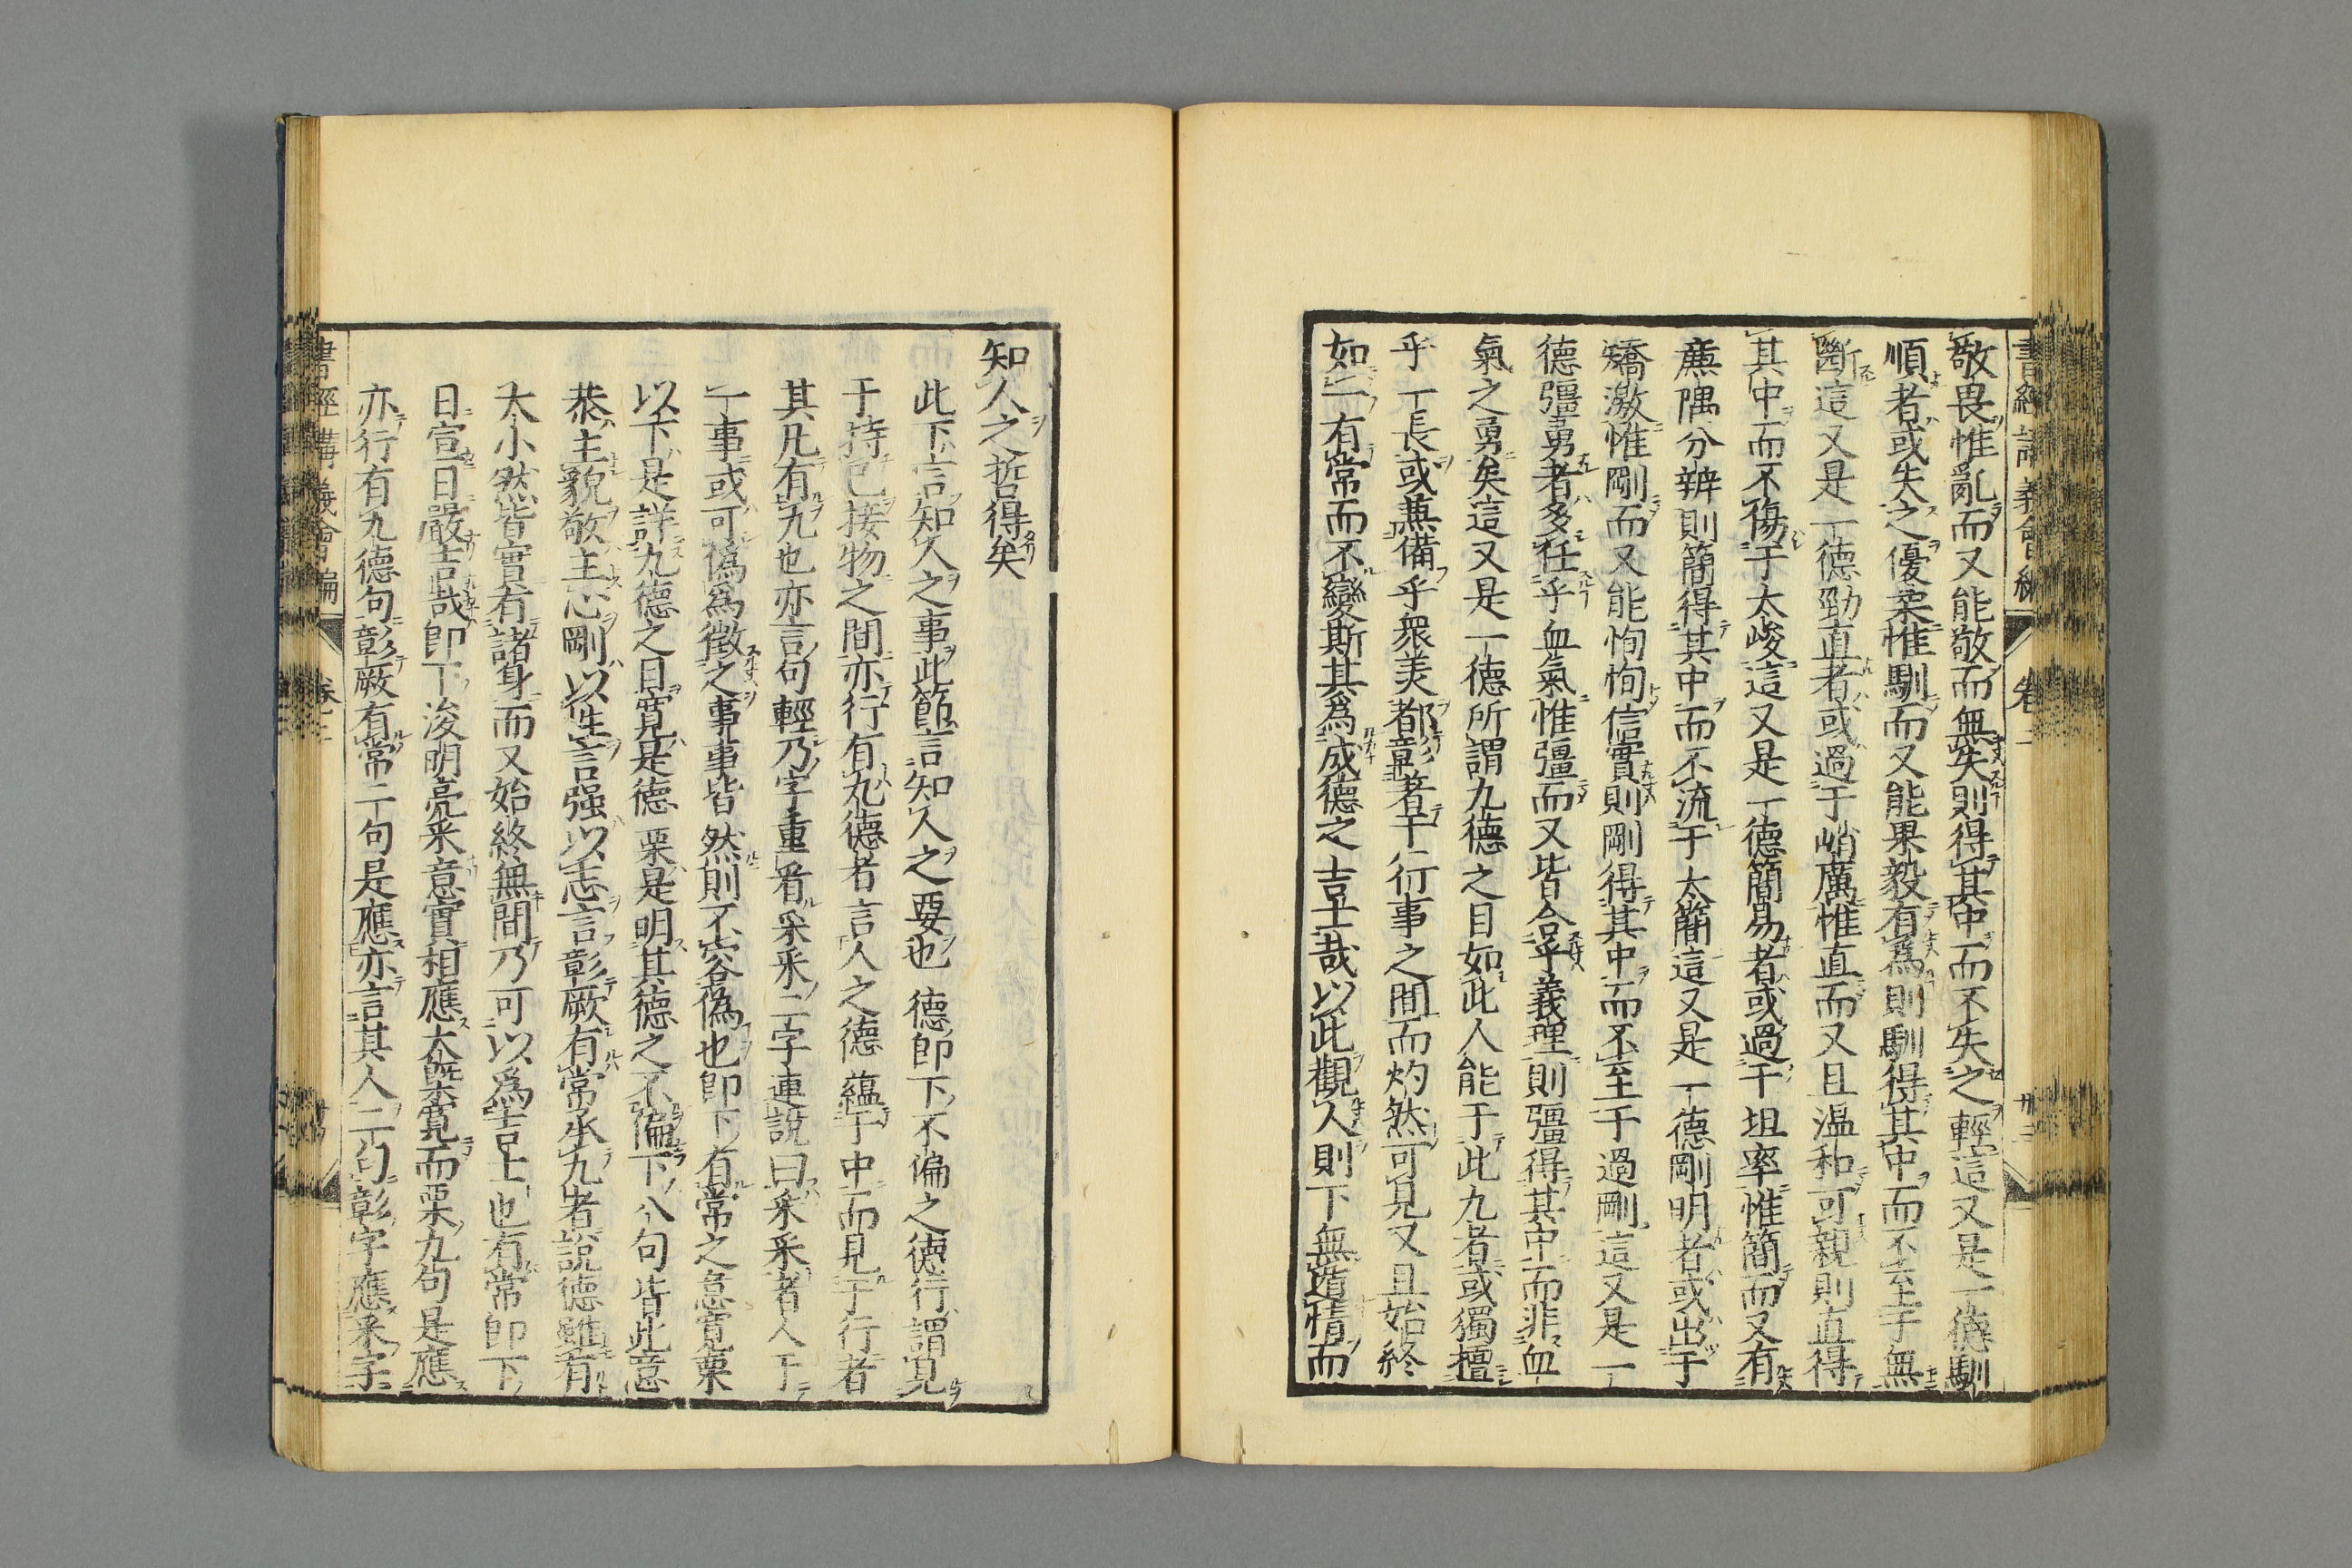 敬畏惟亂而又能敬而無失則得其中而不失之輕這又是一德馴
順者或失之優柔惟馴而又能果毅有爲則馴得其中而不至于無
斷這又是一德勁直者或過于峭厲惟直而又且溫和可親則直得
其中而不傷于太峻這又是一德簡易者或過于坦率惟簡而又有
廉隅分辨則簡得其中而不流于太簡這又是一德剛明者或出于
矯激惟剛而又能恂恂信實則剛得其中而不至于過剛這又是一
德彊勇者多任乎血氣惟彊而又皆合乎義理則彊得其中而非血
氣之勇矣這又是一德所謂九德之目如此人能于此九者或獨擅
乎一長或兼備乎衆美都彰著于行事之間而灼然可見又且始終
如一有常而不變斯其爲成德之吉士哉以此觀人則下無遁情而
知人之哲得矣
此下言知人之事此節言知人之要也 德卽下不偏之德行謂見
于持已接物之間亦行有九德者言人之德蘊于中而見于行者
其凡有九也亦言句輕乃字重看采采二字連說曰采采者人于
一事或可僞爲徵之事事皆然則不容僞也卽下有常之意寬栗
以下是詳九德之目寬是德栗是明其德之不偏下八句皆此意
恭主貌敬主心剛以性言强以志言彰厥有常承九者說德雖有
大小然皆實有諸身而又始終無間乃可以爲吉士也有常卽下
日宣日嚴吉哉卽下浚明亮采意實相應大槩寬而栗九句是應
亦行有九德句彰厥有常二句是應亦言其人二句彰字應采字
書經講義會編 卷二